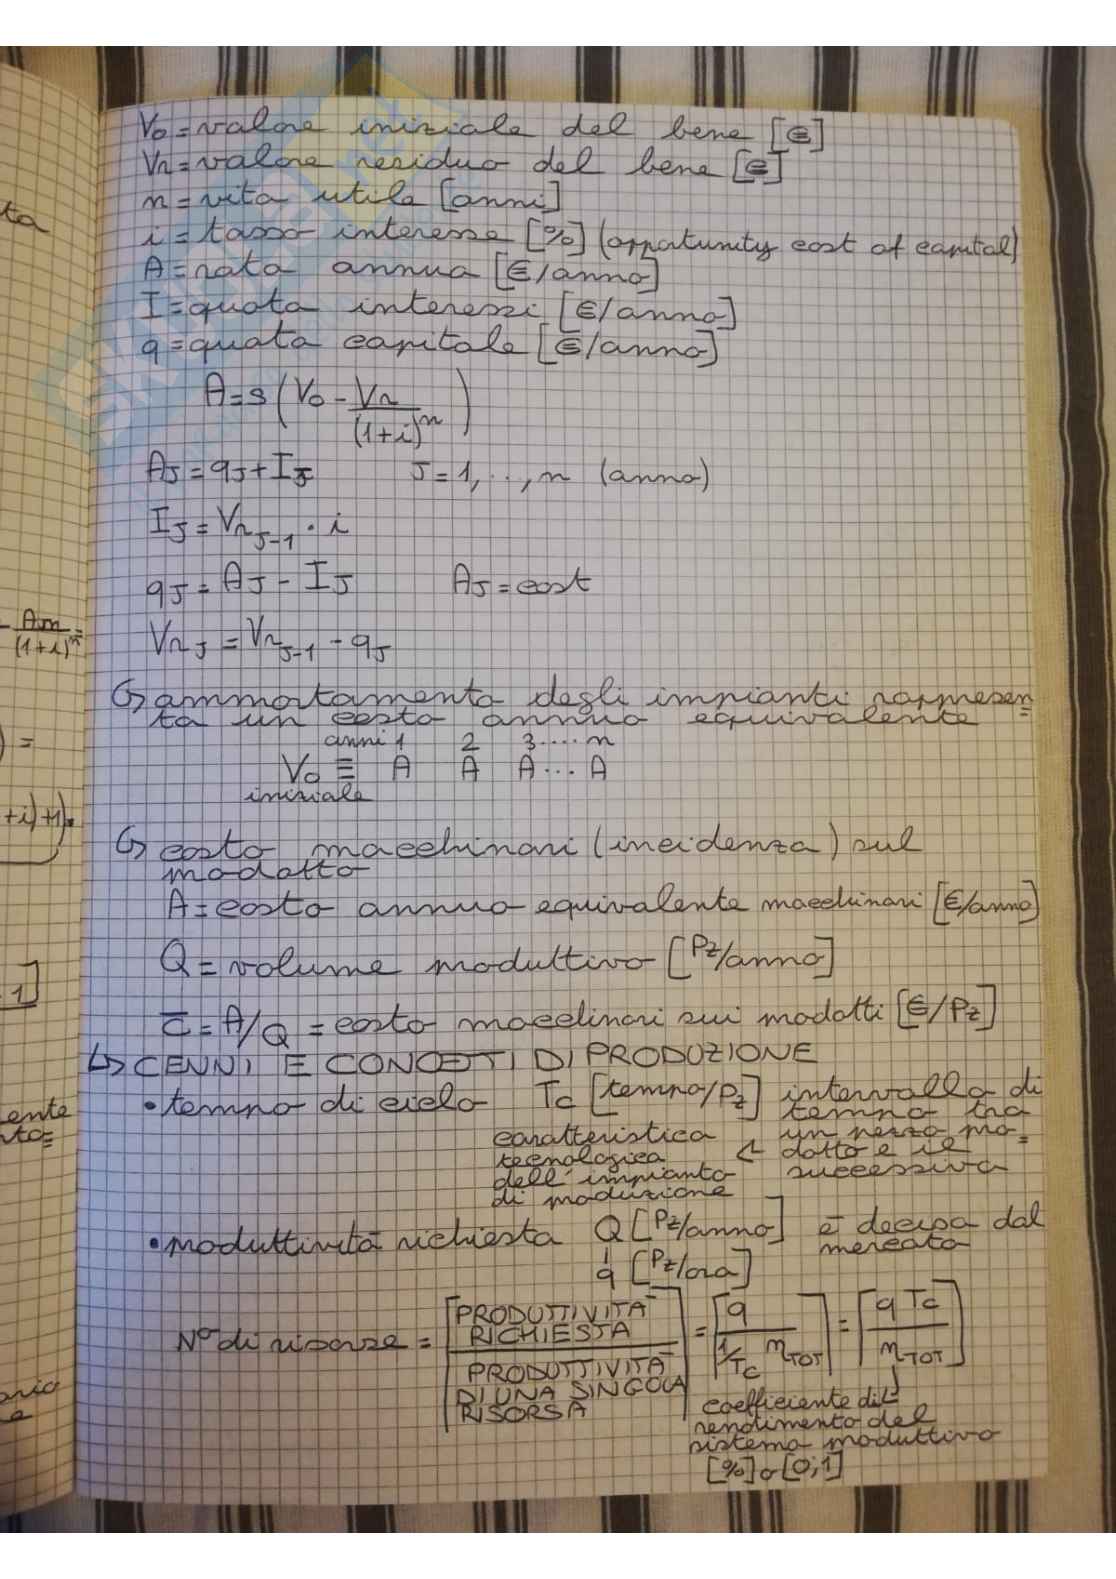 V₀ = valore iniziale del bene [€]
Vr = valore residuo del bene [€]
n = vita utile [anni]
i = tasso interesse [%] (opportunity cost of capital)
A = rata annua [€/anno]
I = quota interessi [€/anno]
q = quota capitale [€/anno]
A = s (V₀ - Vr/(1+i)ⁿ)
A_J = q_J + I_J J = 1, ..., n (anno)
I_J = Vr_J-1 · i
q_J = A_J - I_J A_J = cost
Vr_J = Vr_J-1 - q_J
↳ ammortamento degli impianti rappresen=
ta un costo annuo equivalente
anni 1 2 3 .... n
V₀ ≡ A A A ... A
iniziale
↳ costo macchinari (incidenza) sul
prodotto
A = costo annuo equivalente macchinari [€/anno]
Q = volume produttivo [Pz/anno]
c̅ = A/Q = costo macchinari sui prodotti [€/Pz]
↳ CENNI E CONCETTI DI PRODUZIONE
• tempo di ciclo Tc [tempo/Pz] intervallo di
tempo tra
un pezzo pro=
dotto e il
successivo
caratteristica
tecnologica
dell'impianto
di produzione
• produttività richiesta Q [Pz/anno] è decisa dal
mercato
q [Pz/ora]
N° di risorse = ⌈PRODUTTIVITÀ RICHIESTA / PRODUTTIVITÀ DI UNA SINGOLA RISORSA⌉ = ⌈q / (1/Tc η_TOT)⌉ = ⌈q Tc / η_TOT⌉
coefficiente di
rendimento del
sistema produttivo
[%] o [0;1]
ta
- An/(1+i)ⁿ =
) =
+i)+1).
- 1]
ente
to=